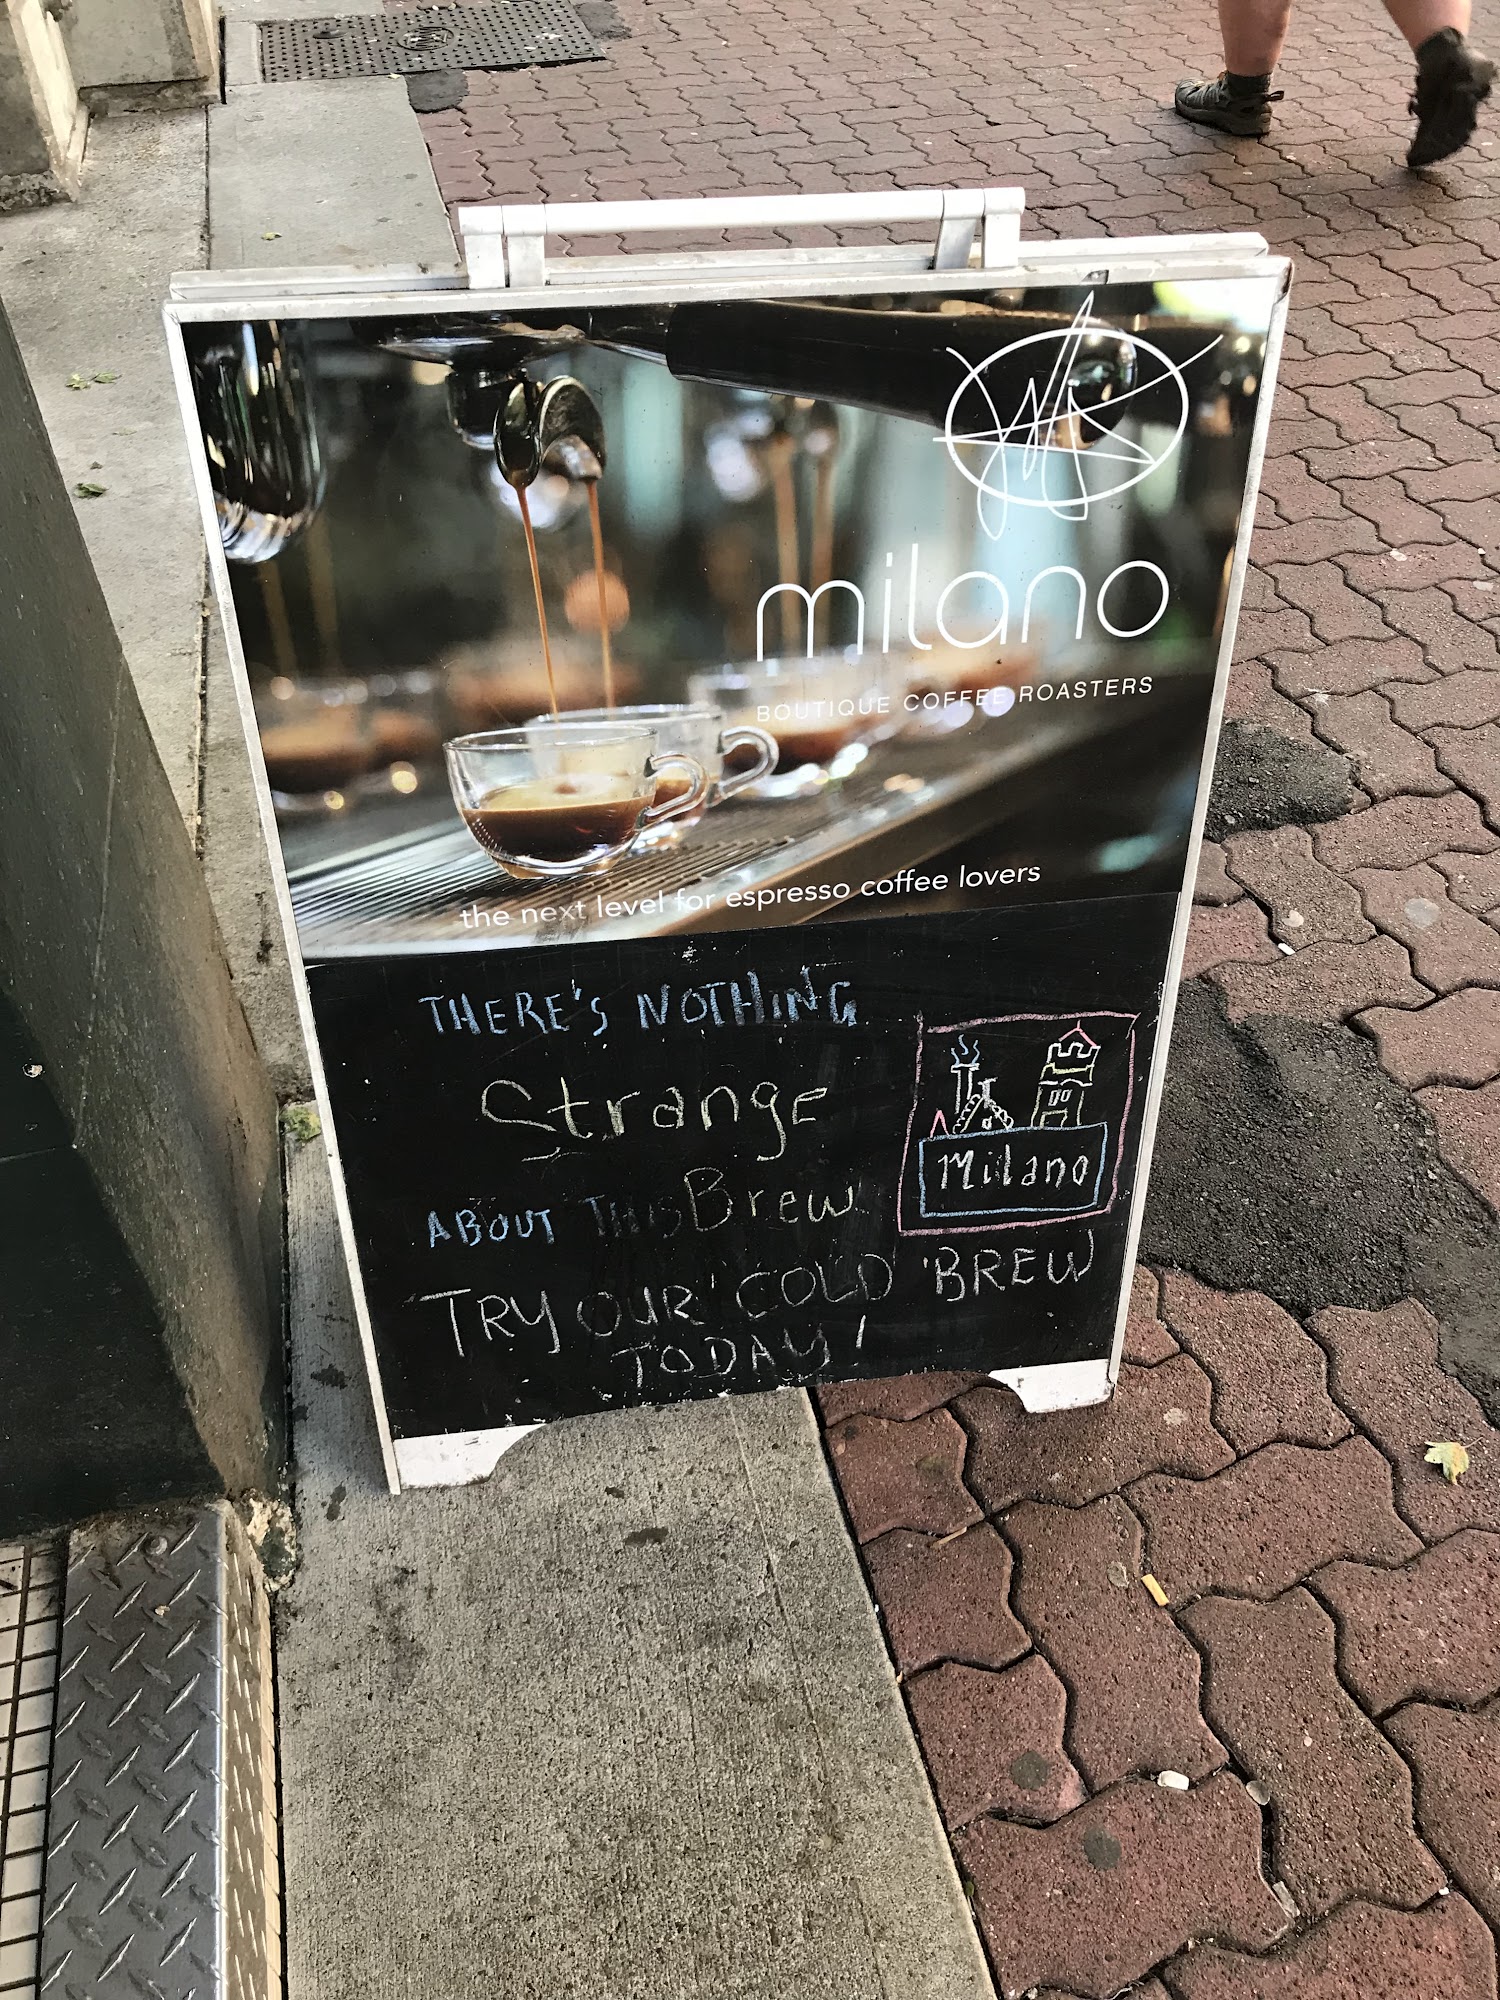 milano
BOUTIQUE COFFEE ROASTERS
the next level for espresso coffee lovers
THERE'S NOTHING
Strange
ABOUT THIS Brew
Milano
TRY OUR 'COLD 'BREW
TODAY!